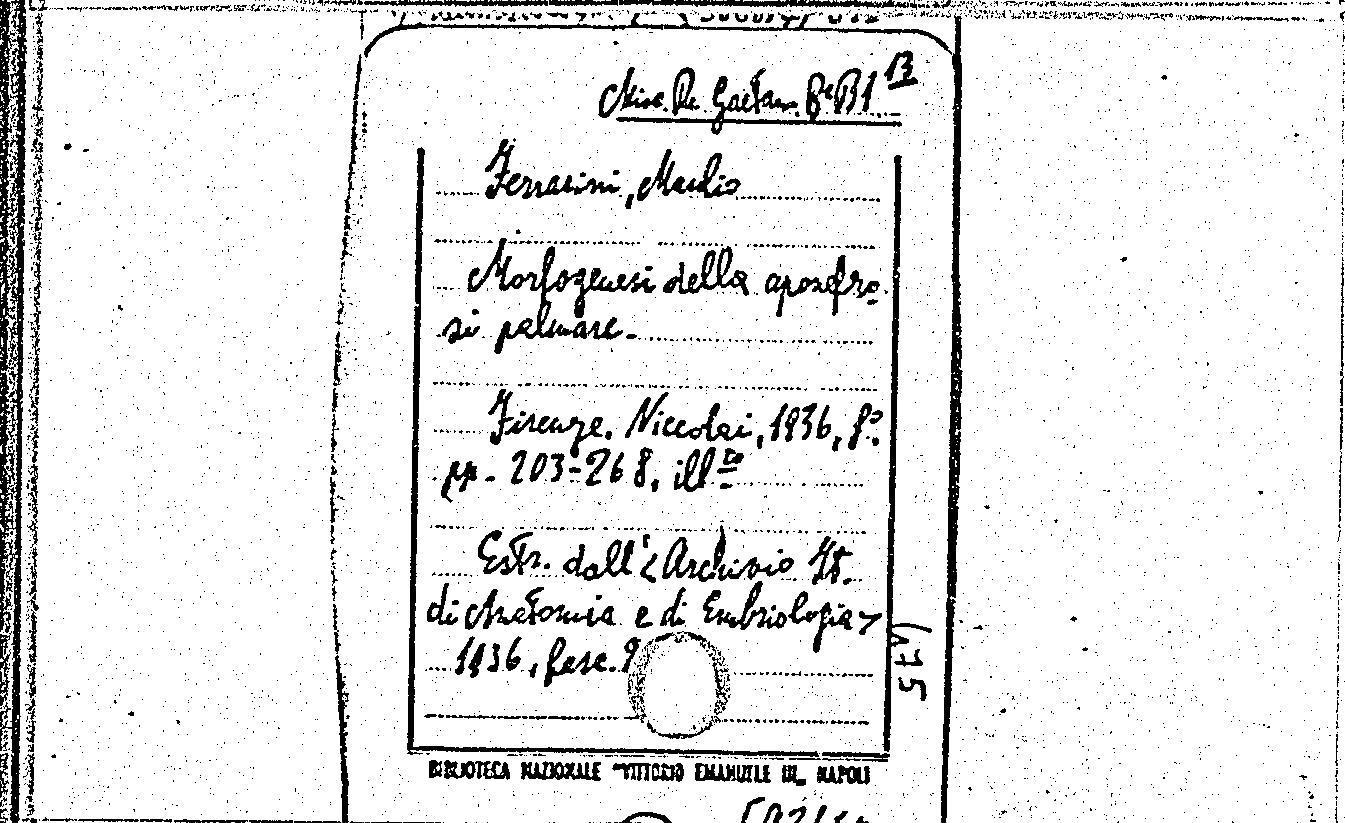 Misc. De Gaetan. Bª B1 13
Ferrarini, Manlio
Morfogenesi della aponefro-
si palmare.
Firenze. Niccolai, 1936, 8°.
pp. 203-268, ill.to
Estr. dall'«Archivio It.
di Anatomia e di Embriologia»
1936, fasc. 2
175
BIBLIOTECA NAZIONALE "VITTORIO EMANUELE III" NAPOLI